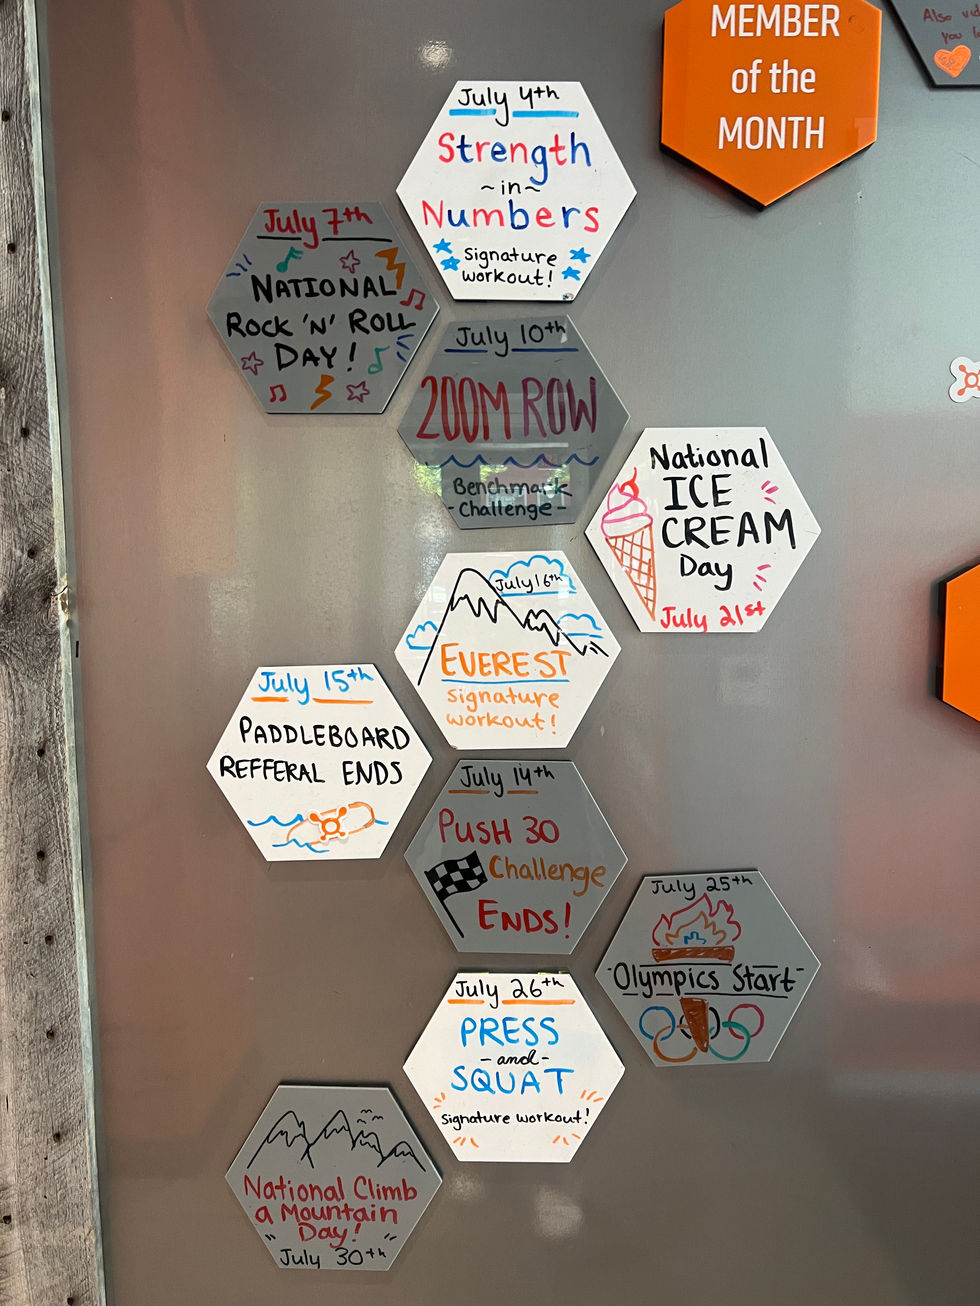 MEMBER
of the
MONTH
Also vid
you l
July 4th
Strength
~in~
Numbers
Signature
workout!
July 7th
NATIONAL
ROCK 'N' ROLL
DAY!
July 10th
200M ROW
Benchmark
-Challenge-
National
ICE
CREAM
Day
July 21st
July 16th
EVEREST
signature
workout!
July 15th
PADDLEBOARD
REFFERAL ENDS
July 14th
PUSH 30
Challenge
ENDS!
July 25th
-Olympics Start-
July 26th
PRESS
-and-
SQUAT
signature workout!
National Climb
a Mountain
Day!
July 30th